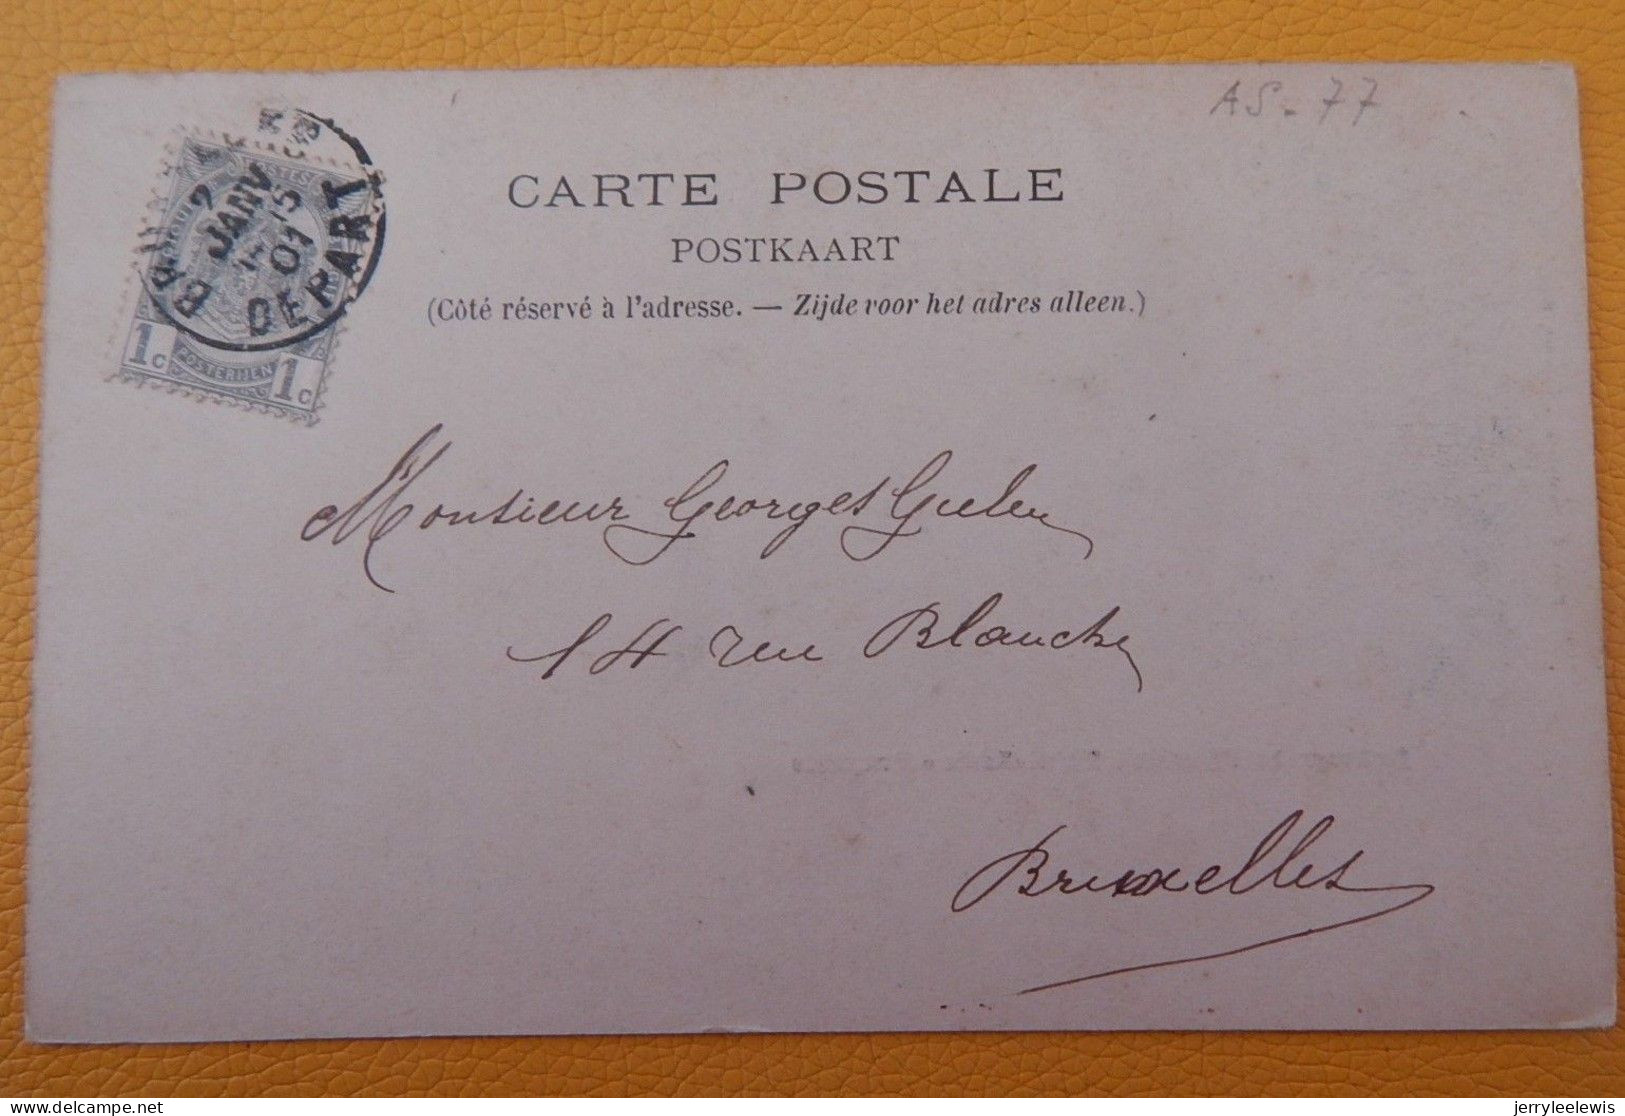 AS-77
CARTE POSTALE
POSTKAART
(Côté réservé à l'adresse. — Zijde voor het adres alleen.)
7
JANV
01
DEPART
1c POSTERIJEN 1c
Monsieur Georges Gielen
14 rue Blanche
Bruxelles
delcampe.net
jerryleelewis